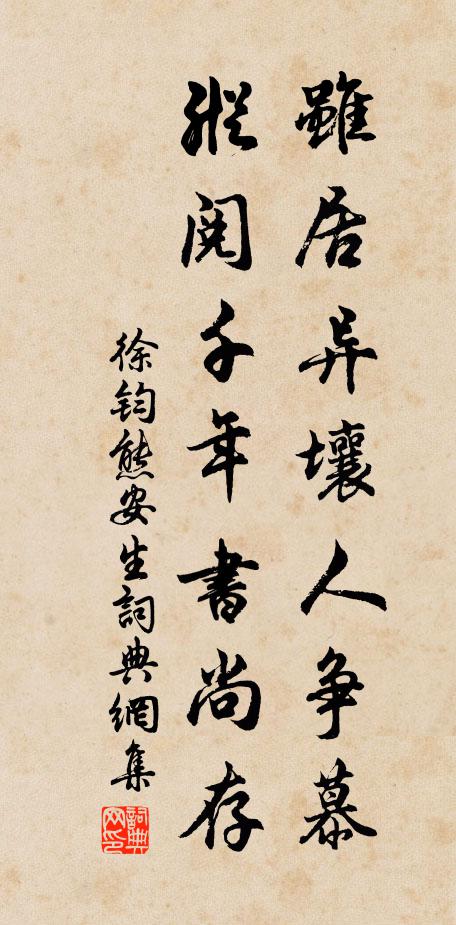 雖居异壤人争慕
縱閱千年書尚存
徐鈞熊安生詞典網集
詞典网印